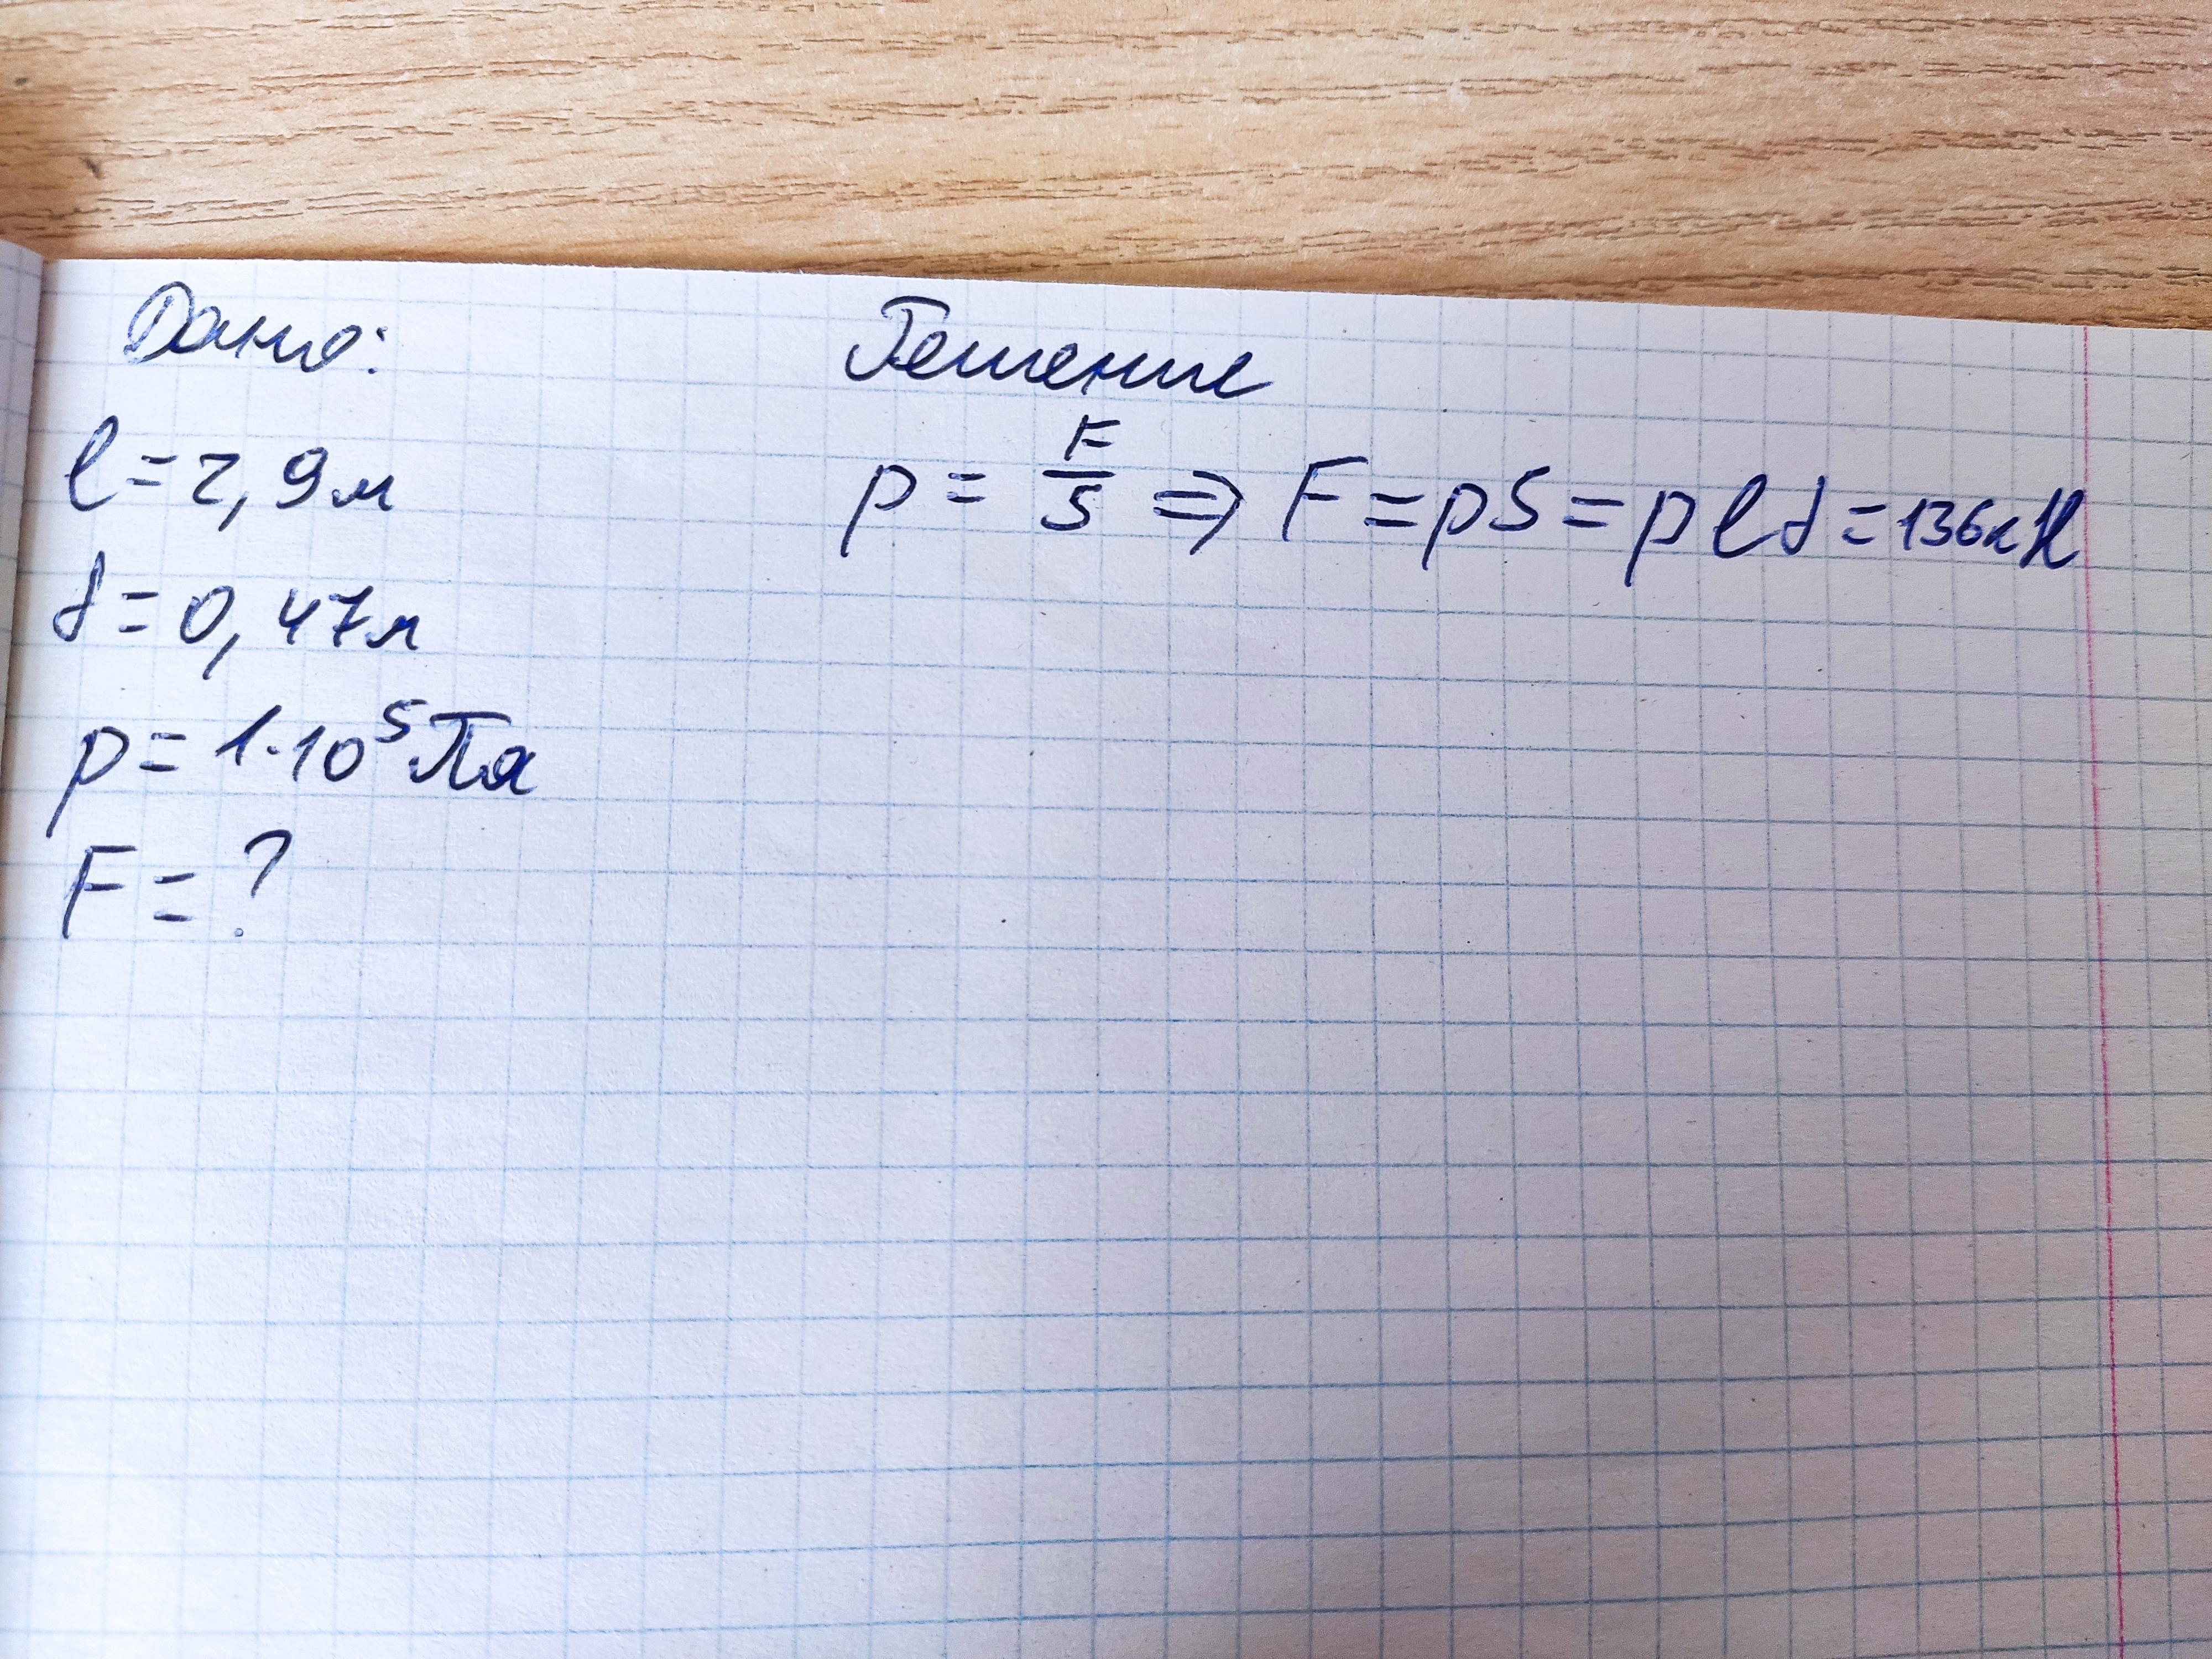 Дано:
l = 2,9 м
d = 0,47 м
p = 1·10⁵ Па
F = ?
Решение
p = F/S ⇒ F = pS = pld = 136 кН